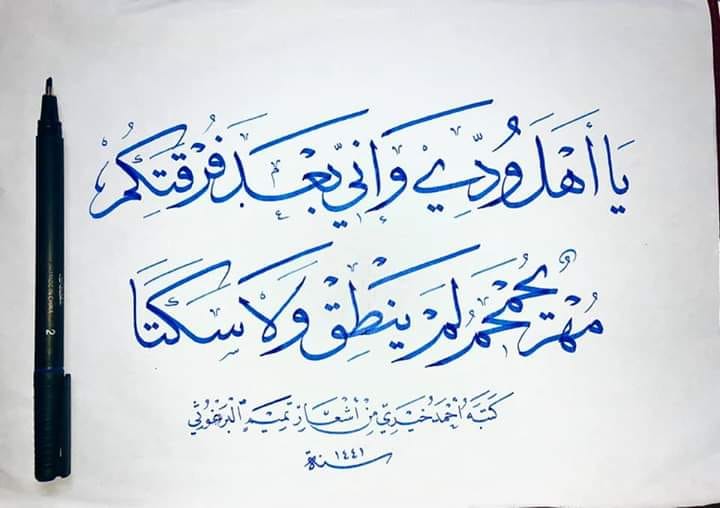 يَا أَهْلَ وُدِّي وَإِنِّي بَعْدَ فُرْقَتِكُمْ
مُهْرٌ يُحَمْحِمُ لَمْ يَنْطِقْ وَلَا سَكَتَا
كتبه أحمد حيدري من أشعار تميم البرغوثي
سنة ١٤٤١
2